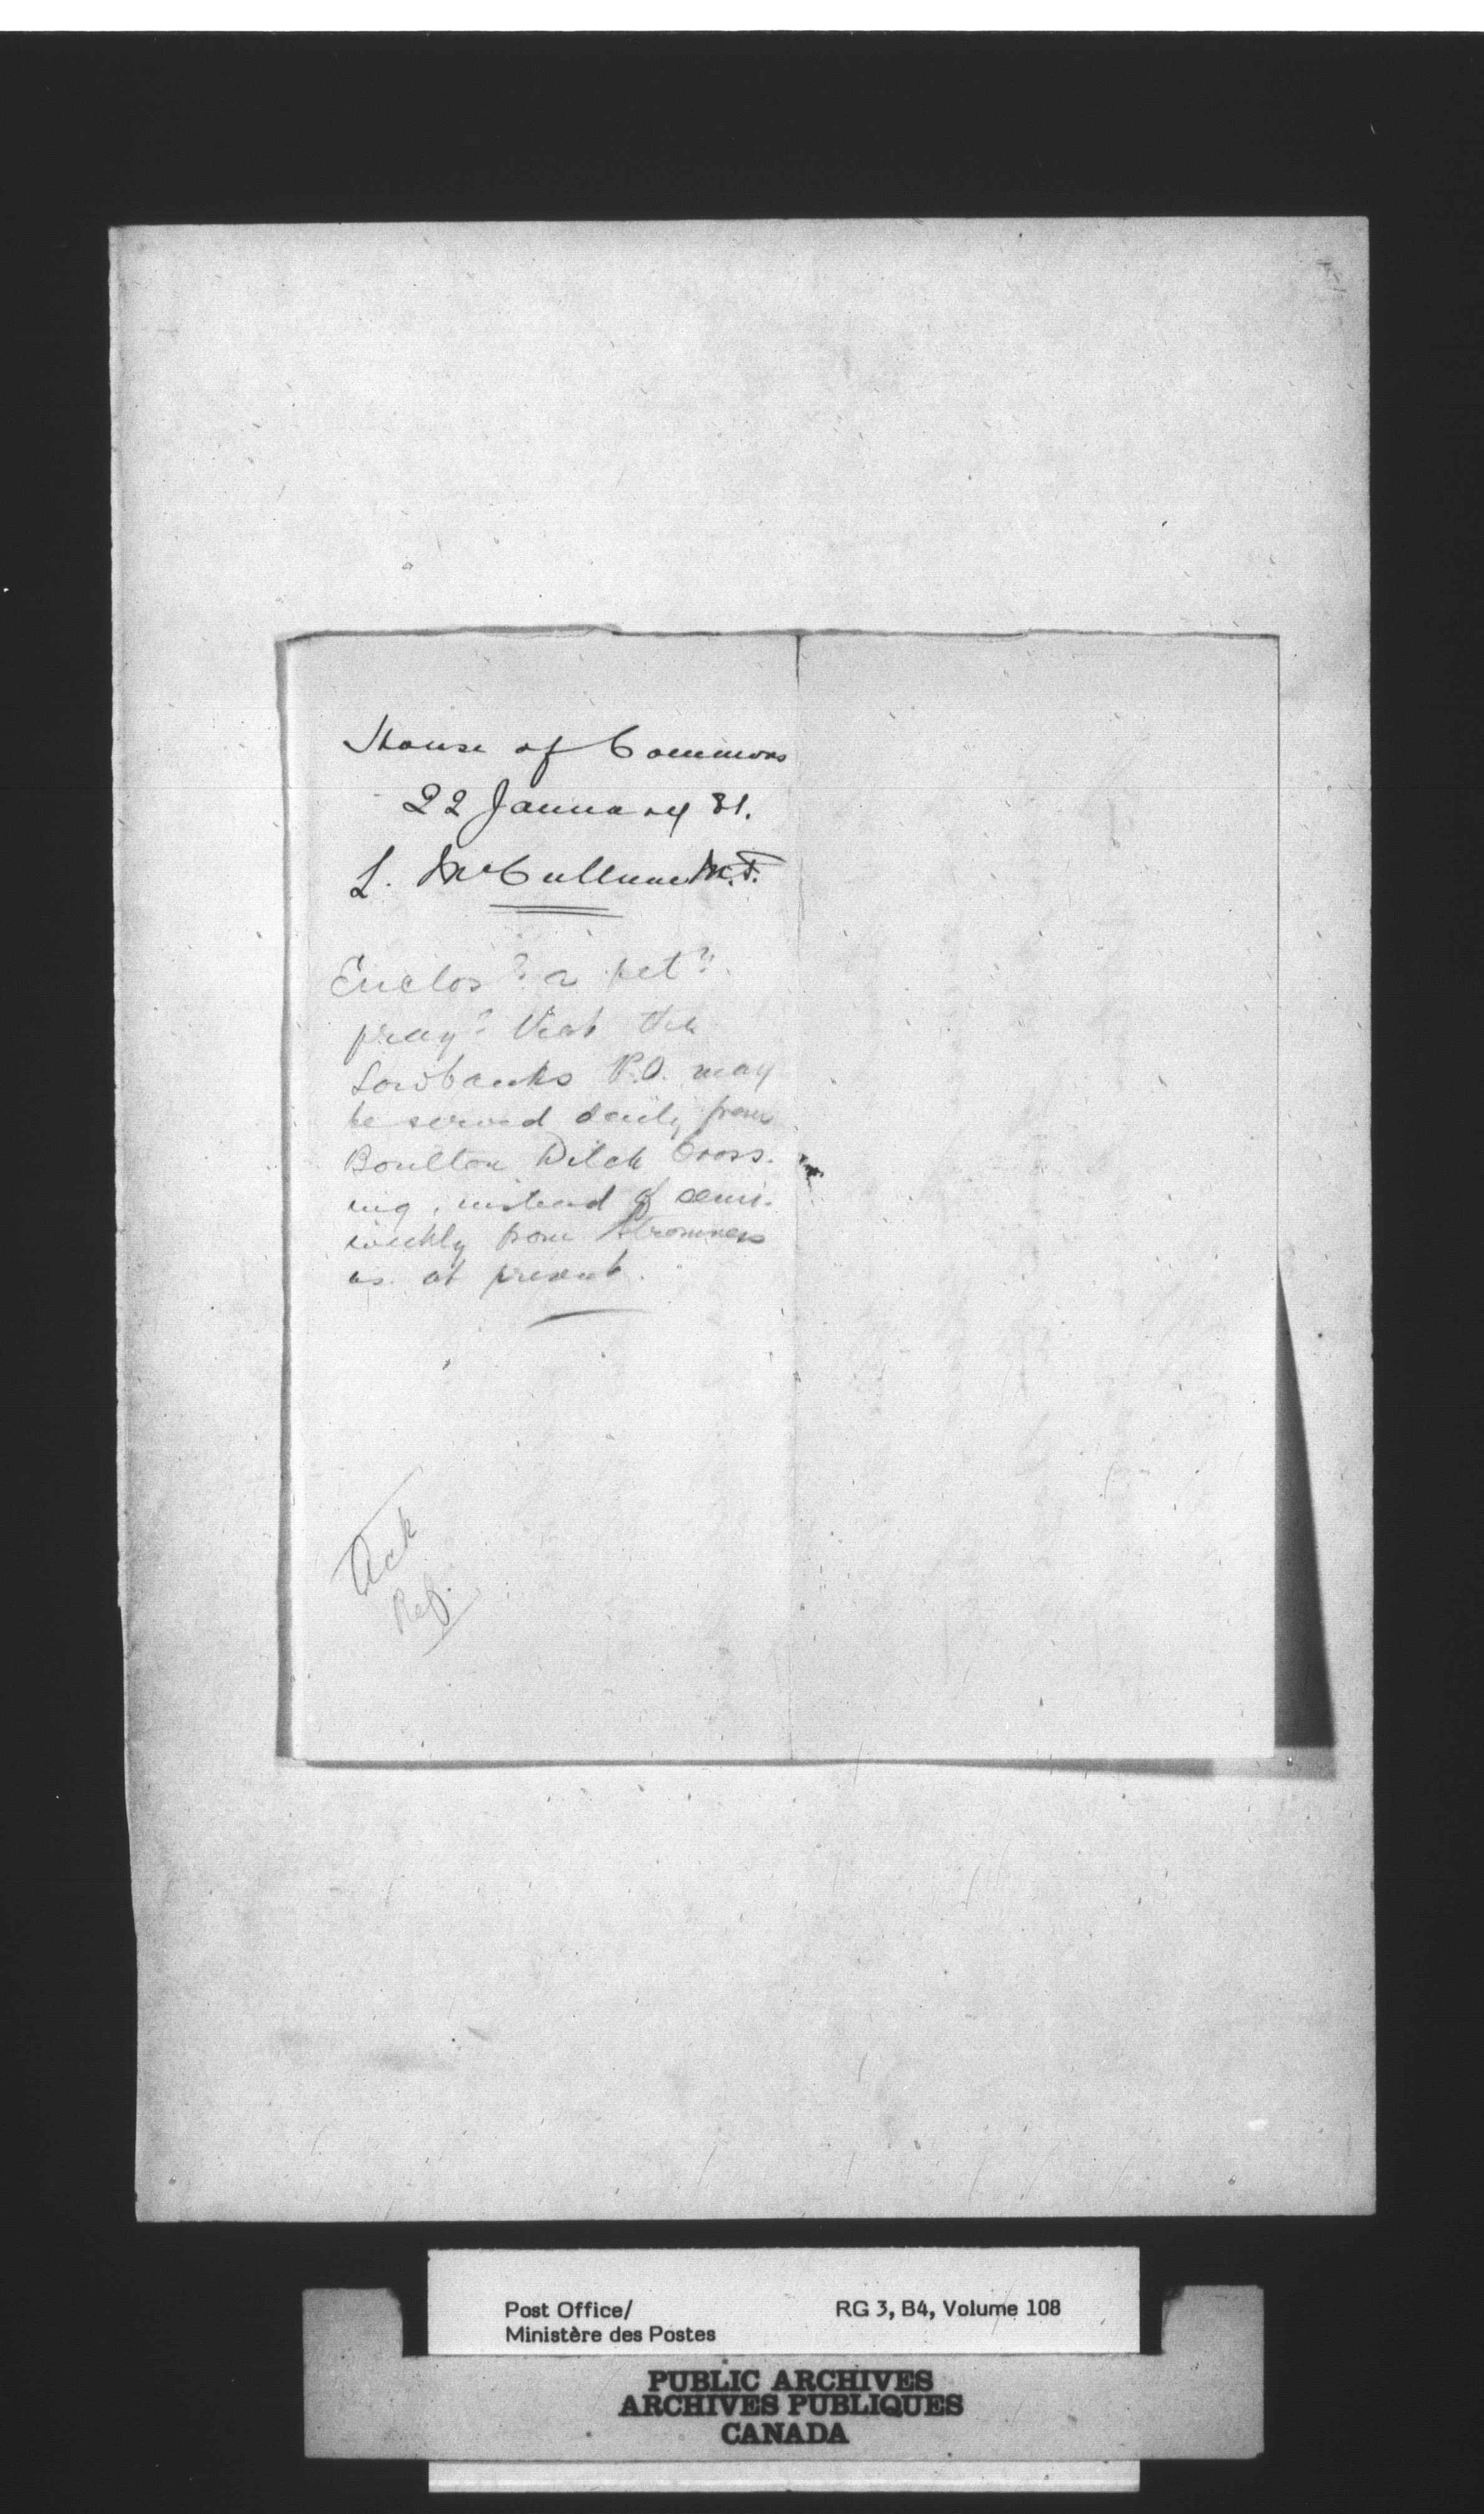 House of Commons
22 January 81.
L. McCullum M.P.
Enclosg a petn
prayg that the
Lowbanks P.O. may
be served daily from
Boulton Ditch Cross-
ing, instead of semi-
weekly from Stromness
as at present.
Ack
Ref.
Post Office/
Ministère des Postes
RG 3, B4, Volume 108
PUBLIC ARCHIVES
ARCHIVES PUBLIQUES
CANADA